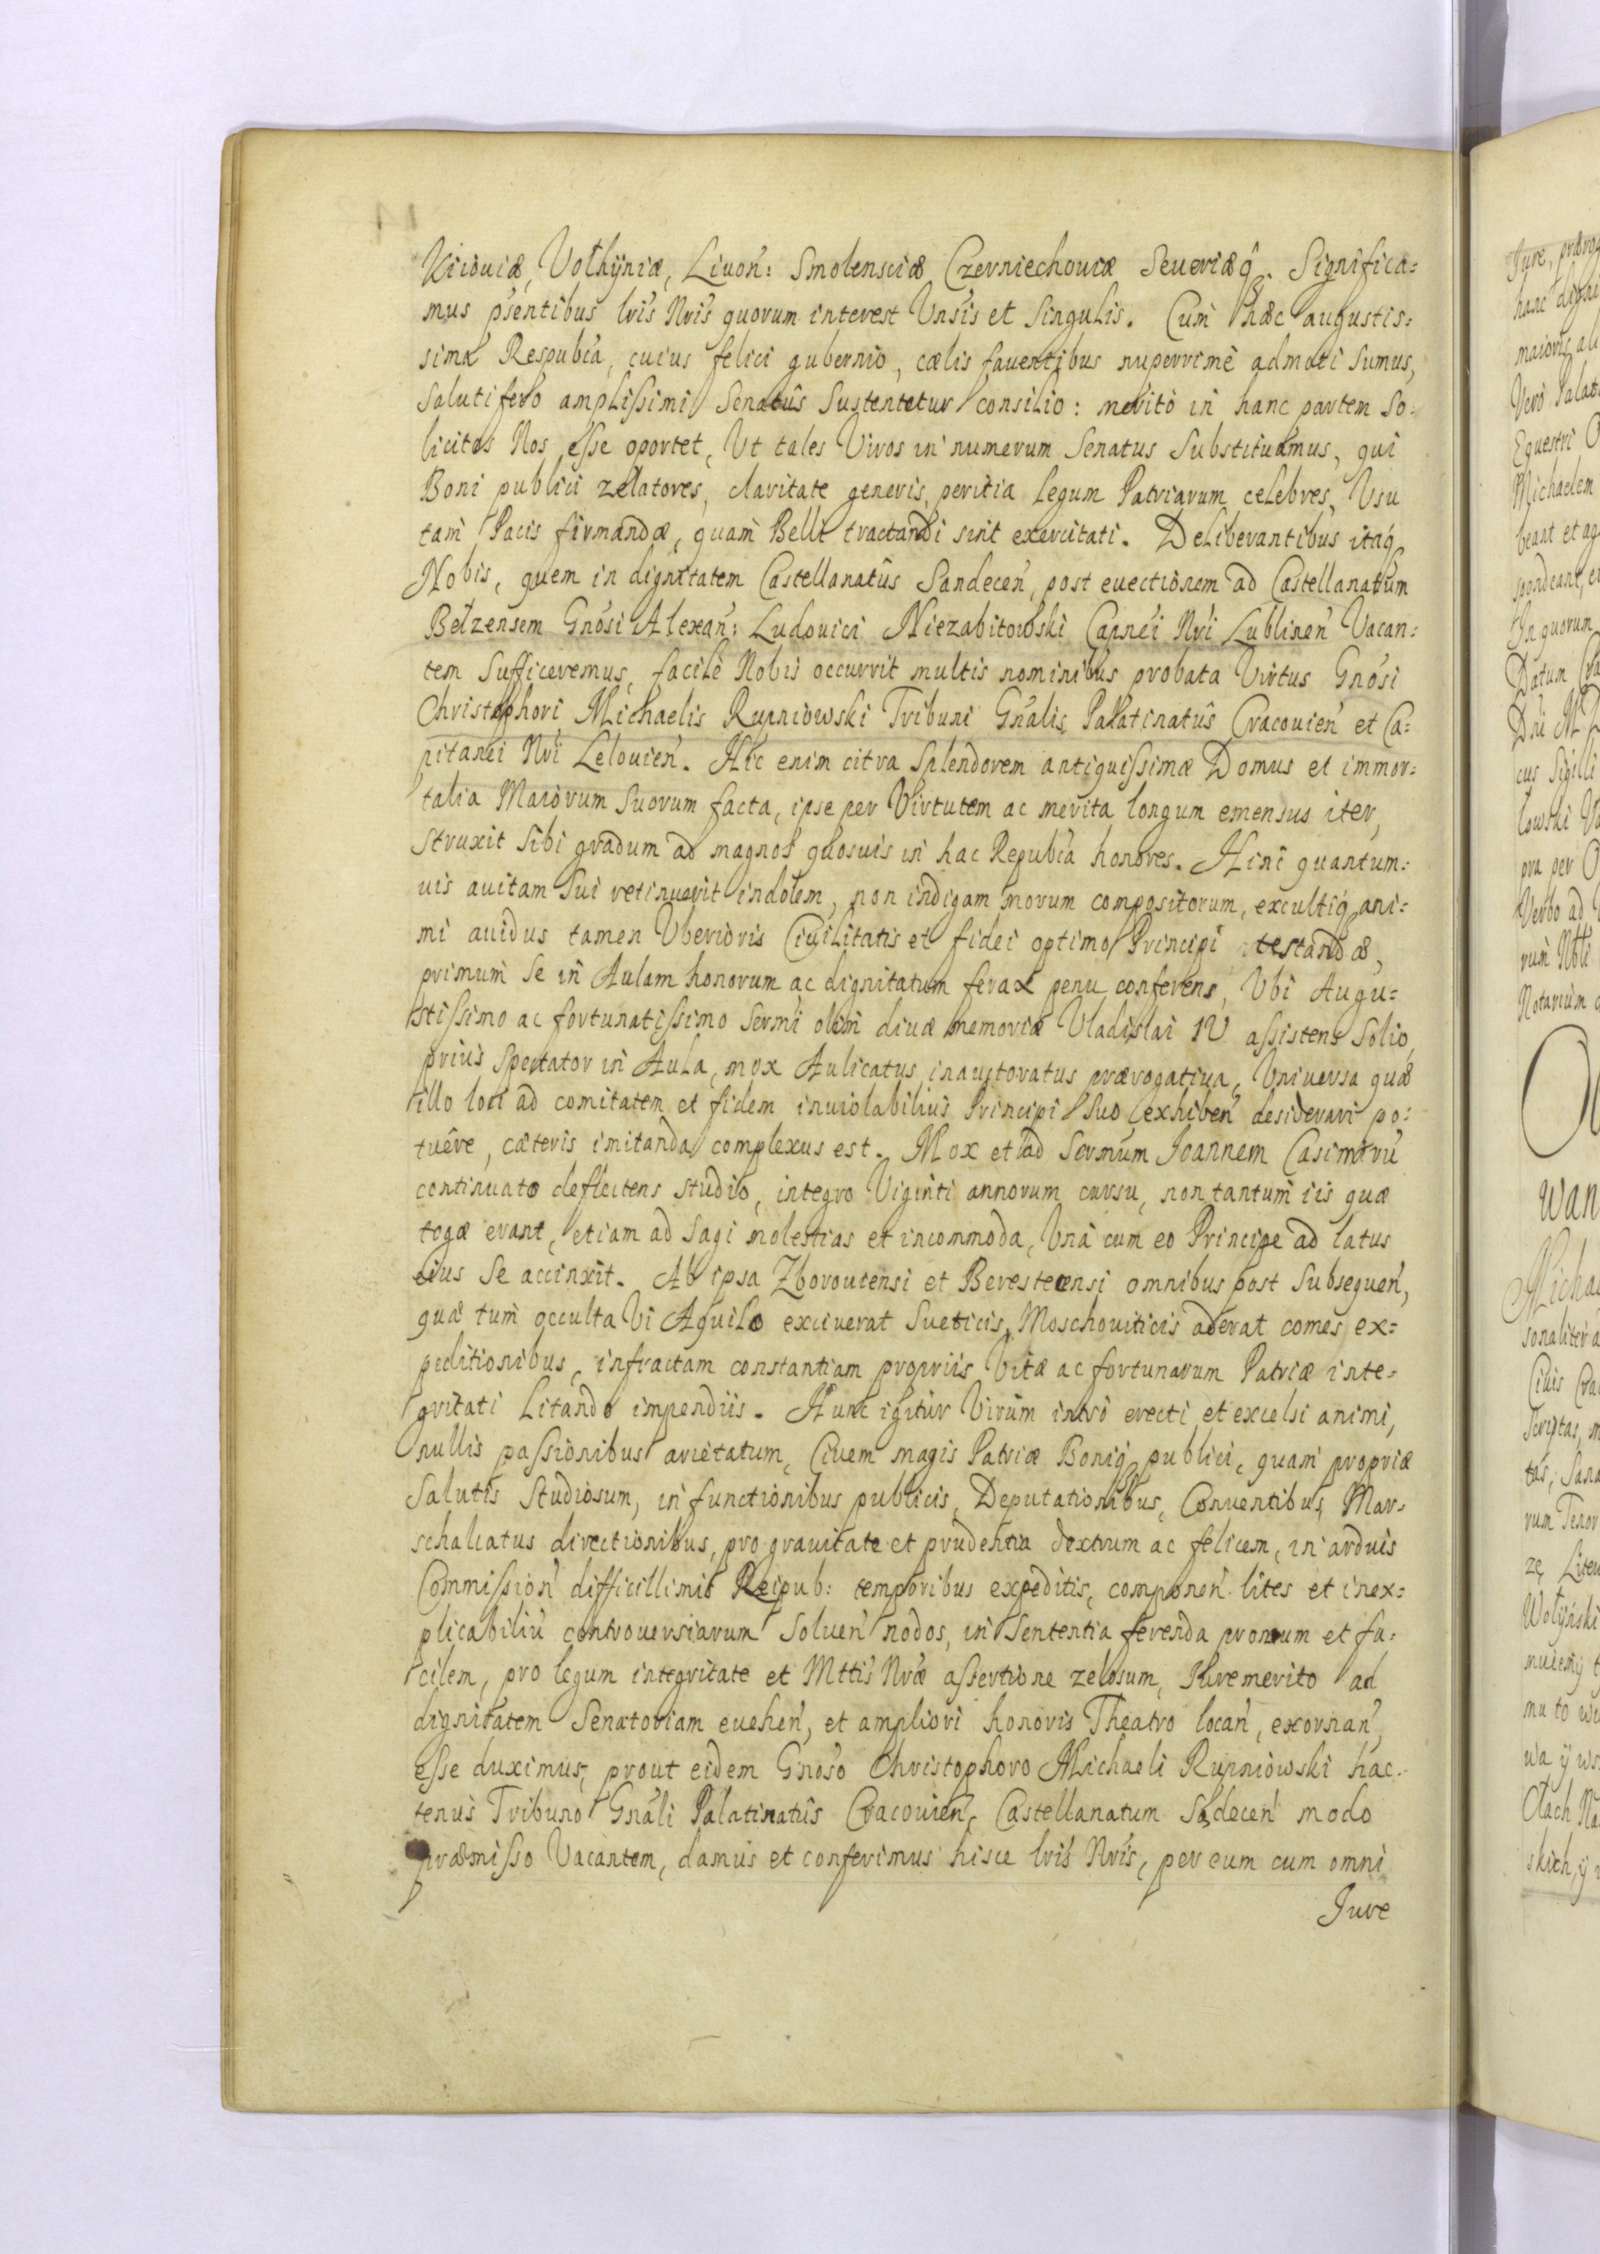 Kiiouiæ, Volhÿniæ, Liuoń: Smolensciæ Czerniechouiæ Seueriæq́. Significa=
mus pśentibus lrís Nrís quorum interest Vnśis et Singulis. Cum̀ hæc augustis=
sima Respubĺa, cuius felici gubernio, cælis fauentibus nuperrimè admoti Sumus,
Salutifero amplissimi Senatûs Sustentetur consilio: meritò in hanc partem So-
licitos Nos esse oportet, Vt tales Viros in numerum Senatus Substituamus, qui
Boni publici zelatores, claritate generis, peritia legum Patriarum celebres, Vsu
tam̀ Pacis firmandæ, quam̀ Belli tractandi sint exercitati. Deliberantibus itaq́
Nobis, quem in dignitatem Castellanatûs Sandeceń, post euectionem ad Castellanatum
Belzensem Gnósi Alexań: Ludouici Niezabitowski Capnéi Nrí Lublineń Vacan=
tem Sufficeremus, facilè Nobis occurrit multis nominibus probata Virtus Gnósi
Christophori Michaelis Rupniowski Tribuni Gnális Palatinatûs Cracouień et Ca=
pitanei Nrí Lelouień. Hic enim citra Splendorem antiquissimæ Domus et immor=
talia Maiorum Suorum facta, ipse per Virtutem ac merita longum emensus iter,
Struxit Sibi gradum ad magnos quosuis in hac Repubĺa honores. Hinc quantum=
uis auitam Sui retinuerit indolem, non indigam morum compositorum, excultiq́ ani=
mi auidus tamen Vberioris Ciuilitatis et fidei optimo Principi testandæ,
primum̀ Se in Aulam honorum ac dignitatum ferax penu conferens, Vbi Augu=
stissimo ac fortunatissimo Sermí olim diuæ memoriæ Vladislai IV assistens Solio,
priùs Spectator in Aula, mox Aulicatus inauctoratus prærogatiua, Vniuersa quæ
illo loci ad comitatem et fidem inuiolabiliùs Principi Suo exhibeń desiderari po=
tuêre, cæteris imitanda complexus est. Mox et ad Sermúm Joannem Casimirū
continuato deflectens studio, integro Viginti annorum cursu, non tantum̀ iis quæ
togæ erant, etiam ad Sagi molestias et incommoda, Vnà cum eo Principe ad latus
eius Se accinxit. Ab ipsa Zborouiensi et Berestecensi omnibus post Subsequeń,
quæ tum̀ occulta Vi Aquilo exciuerat Sueticis, Moschouiticis aderat comes ex=
peditionibus, infractam constantiam propriis Vitæ ac fortunarum Patriæ inte=
gritati Litando impendiis. Hunc igitùr Virum intró erecti et excelsi animi,
nullis passionibus arietatum, Ciuem magis Patriæ Boniq́ publici, quam̀ propriæ
Salutis Studiosum, in functionibus publicis, Deputationibus, Conuentibus, Mar=
schalcatus directionibus, pro grauitate et prudentia dextrum ac felicem, in arduis
Commissioń difficillimis Reipub: temporibus expeditis, componeń lites et inex=
plicabiliū controuersiarum Solueń nodos, in Sententia ferenda pronum et fa=
cilem, pro legum integritate et Mttís Nræ assertione zelosum, Iure merito ad
dignitatem Senatoriam eueheń, et ampliori honoris Theatro locań, exornań,
esse duximus; prout eidem Gnóso Christophoro Michaeli Rupniowski hac=
tenùs Tribuno Gnáli Palatinatûs Cracouień, Castellanatum Sādeceń modo
præmisso Vacantem, damus et conferimus hisce lrís Nrís, per eum cum omni
Jure